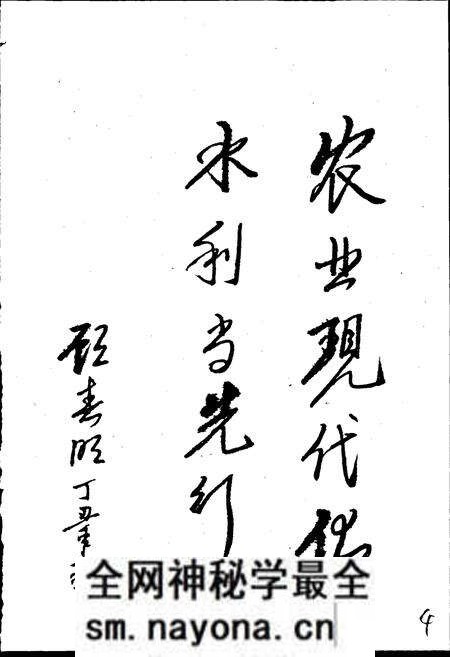 农业现代化
水利当先行
顾春明 丁丑年
4
全网神秘学最全
sm.nayona.cn